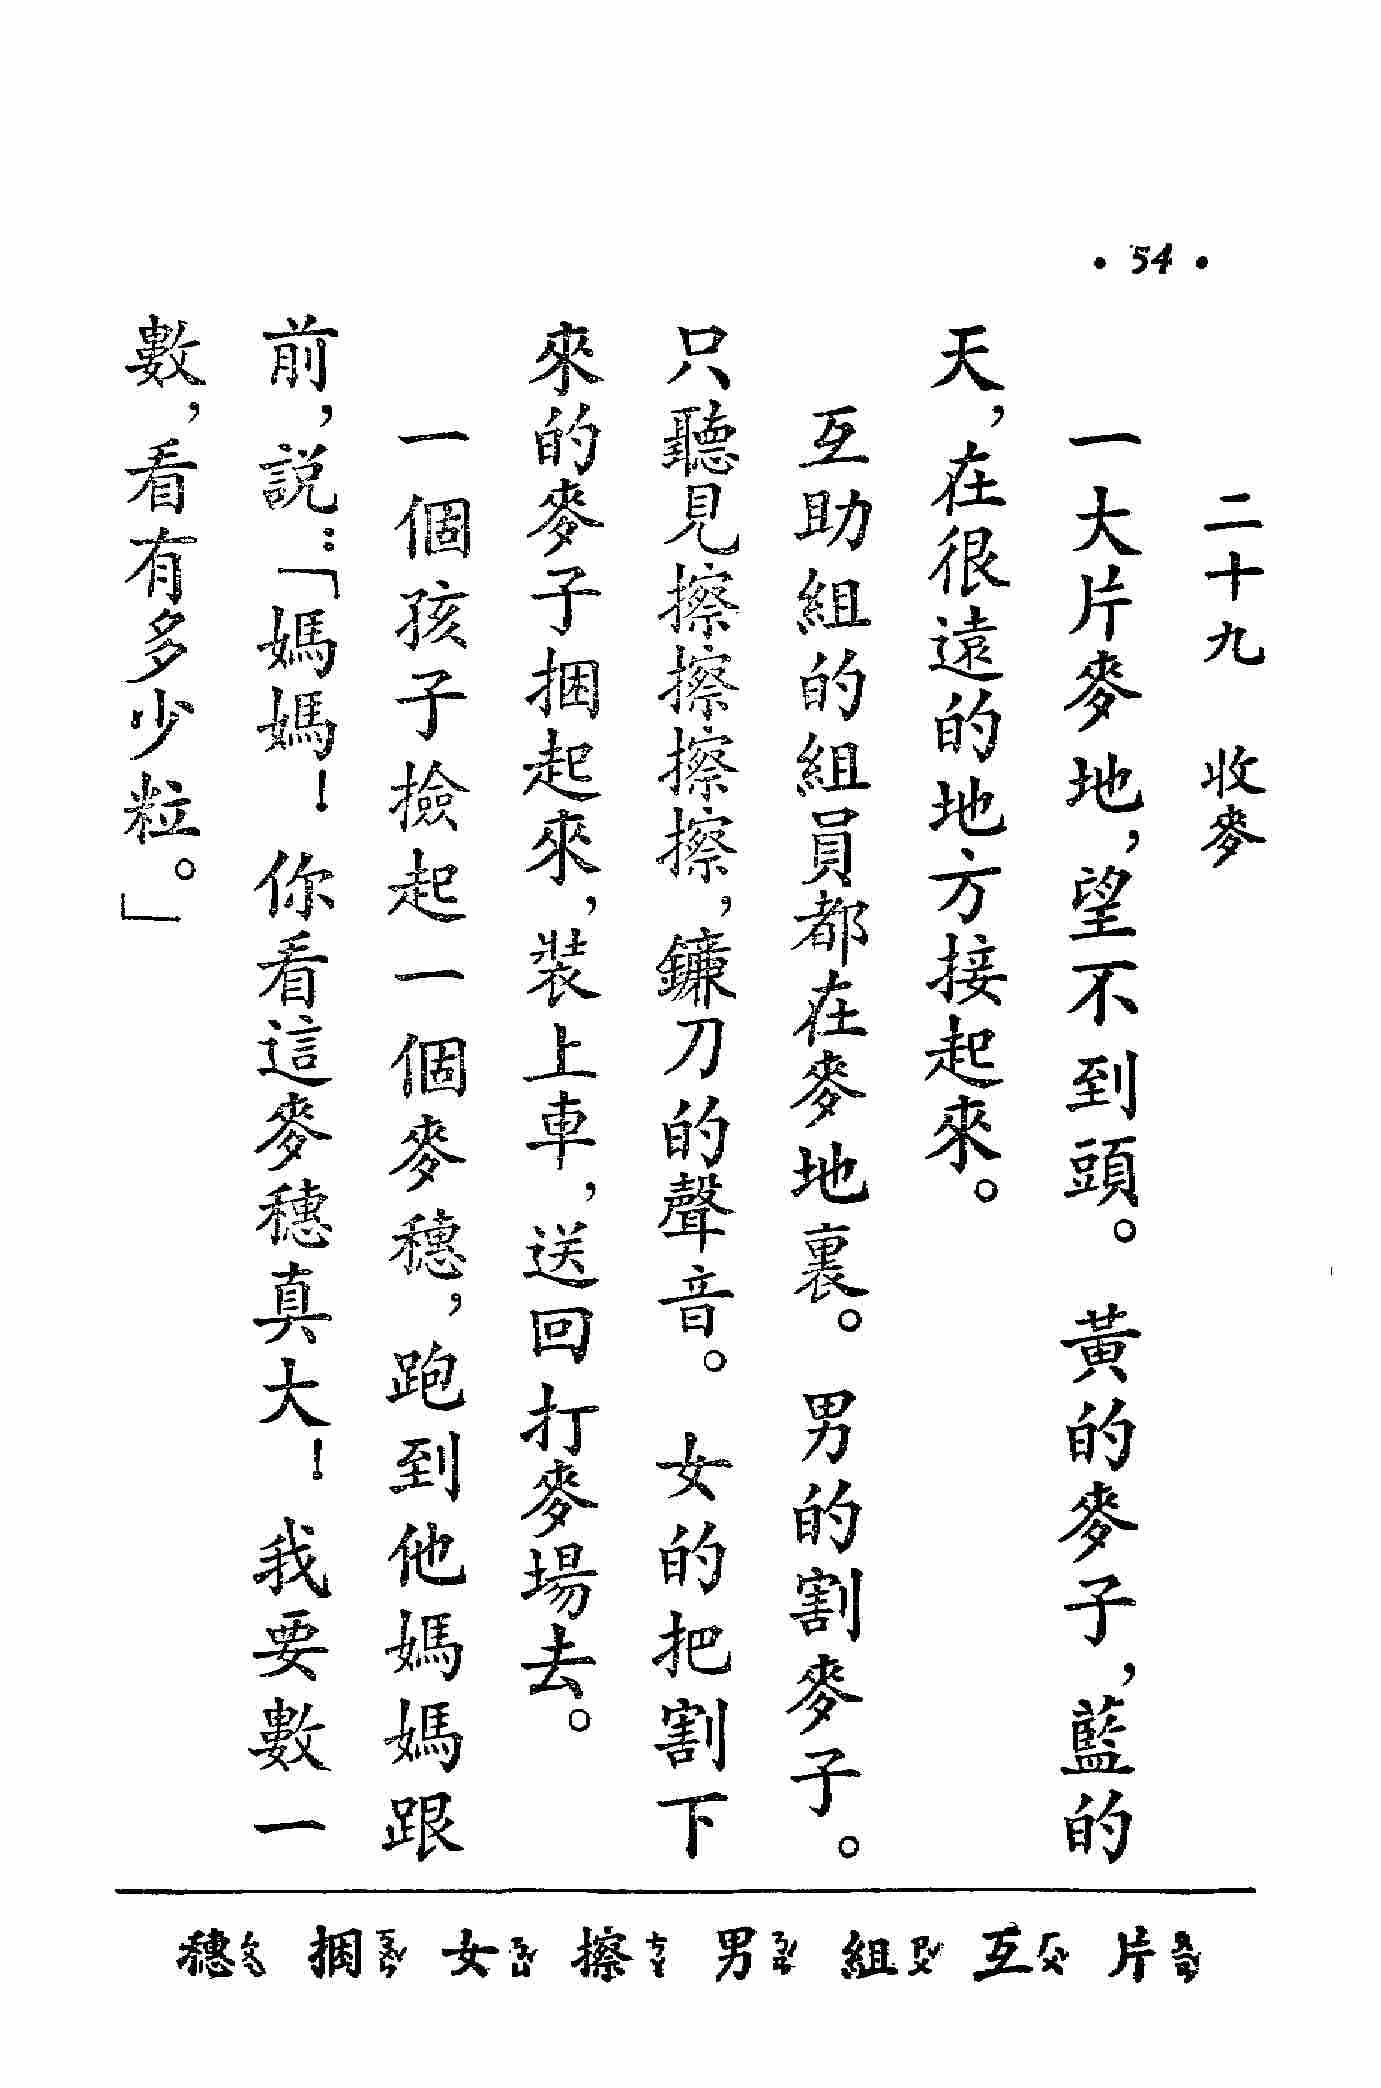 ·54·
二十九　收麥
一大片麥地，望不到頭。黃的麥子，藍的
天，在很遠的地方接起來。
互助組的組員都在麥地裏。男的割麥子。
只聽見擦擦擦擦，鐮刀的聲音。女的把割下
來的麥子捆起來，裝上車，送回打麥場去。
一個孩子撿起一個麥穗，跑到他媽媽跟
前，説：「媽媽！你看這麥穗真大！我要數一
數，看有多少粒。」
片 互 組 男 擦 女 捆 穗